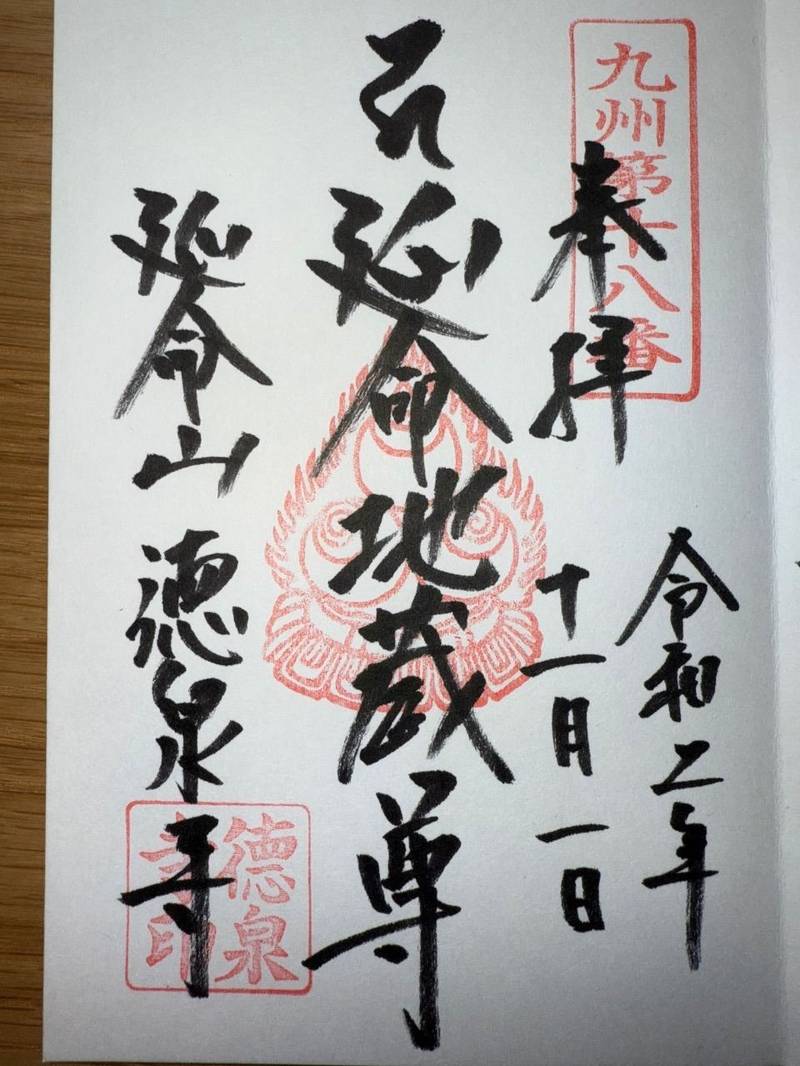 九州第十八番
奉拝
令和二年
十一月一日
延命地蔵尊
延命山 徳泉寺
徳泉
寺印